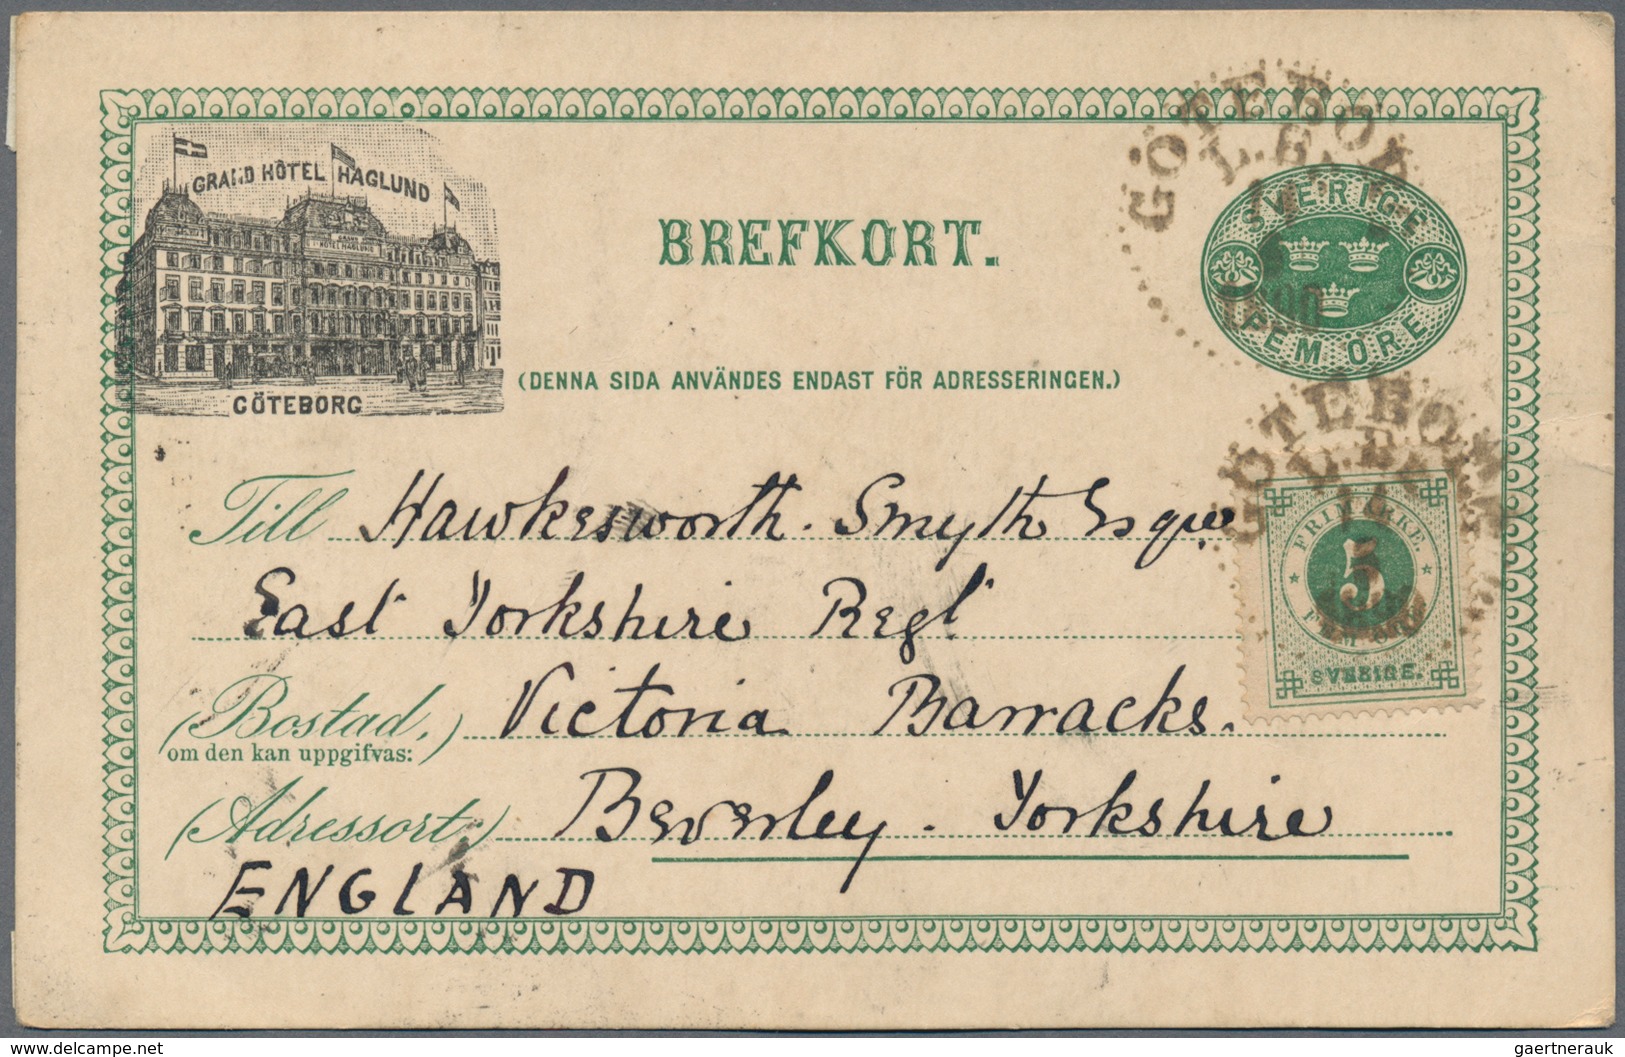 GRAND HÔTEL HAGLUND
GRAND HÔTEL HAGLUND
GÖTEBORG
BREFKORT.
SVERIGE
FEM ÖRE
GÖTEBORG
L.Br.
1890
(DENNA SIDA ANVÄNDES ENDAST FÖR ADRESSERINGEN.)
GÖTEBORG
L.Br.
Till Hawkesworth. Smyth Esqre
East Yorkshire Regt
(Bostad,) Victoria Barracks.
om den kan uppgifvas:
(Adressort,) Beverley. Yorkshire
ENGLAND
FRIMÄRKE.
5
FEM ÖRE
SVERIGE.
gaertnerauk